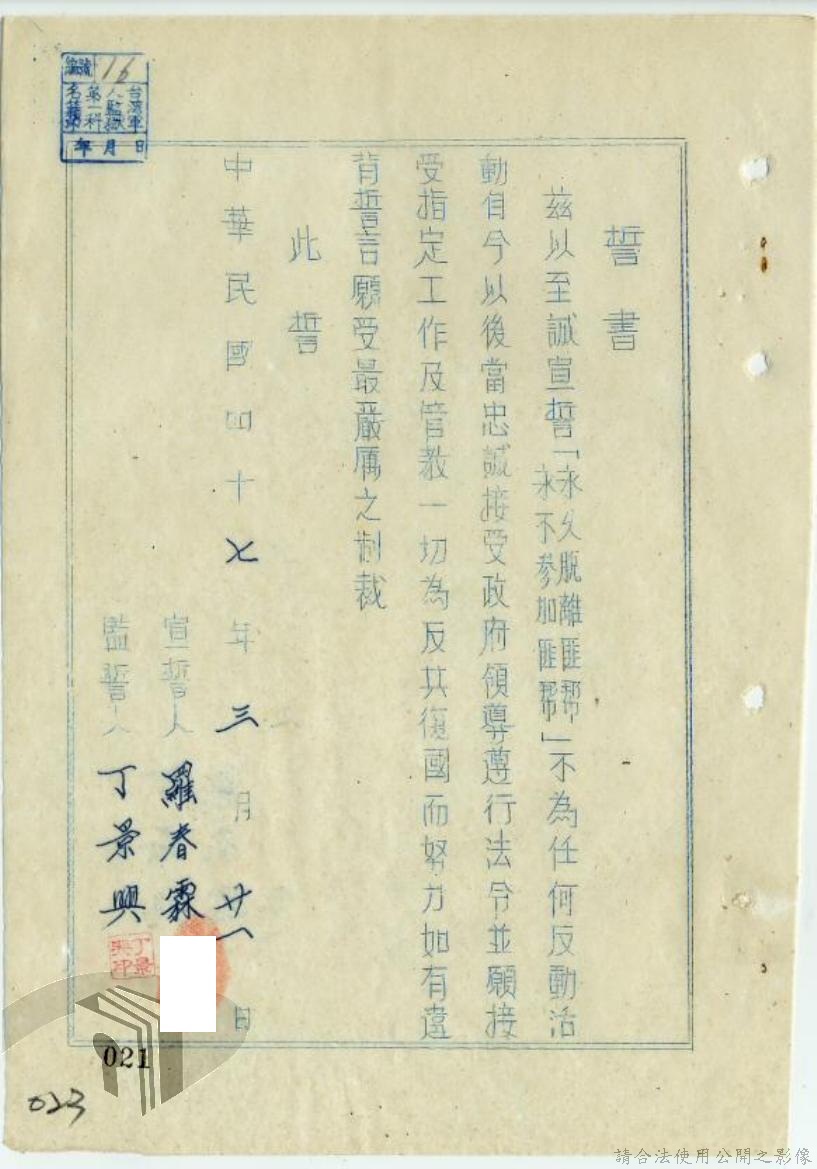 誓書
茲以至誠宣誓「永久脫離匪幫永不參加匪幫」不為任何反動活
動自今以後當忠誠接受政府領導遵行法令並願接
受指定工作及管教一切為反共復國而努力如有違
背誓言願受最嚴厲之制裁
此誓
中華民國四十七年三月廿一日
宣誓人 羅春霖
監誓人 丁景興
丁景興印
編號 16
台灣軍
人監獄
第一科
年月日
021
023
請合法使用公開之影像